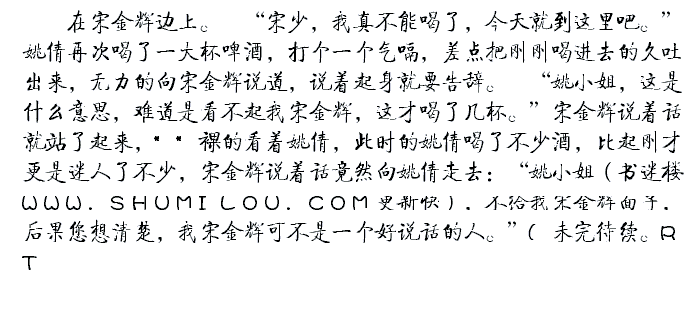 在宋金辉边上。 “宋少，我真不能喝了，今天就到这里吧。”
姚倩再次喝了一大杯啤酒，打个一个气嗝，差点把刚刚喝进去的久吐
出来，无力的向宋金辉说道，说着起身就要告辞。 “姚小姐，这是
什么意思，难道是看不起我宋金辉，这才喝了几杯。”宋金辉说着话
就站了起来，““裸的看着姚倩，此时的姚倩喝了不少酒，比起刚才
更是迷人了不少，宋金辉说着话竟然向姚倩走去：“姚小姐（书迷楼
ＷＷＷ．ＳＨＵＭＩＬＯＵ．ＣＯＭ更新快），不给我宋金辉面子，
后果您想清楚，我宋金辉可不是一个好说话的人。”（未完待续。Ｒ
Ｔ